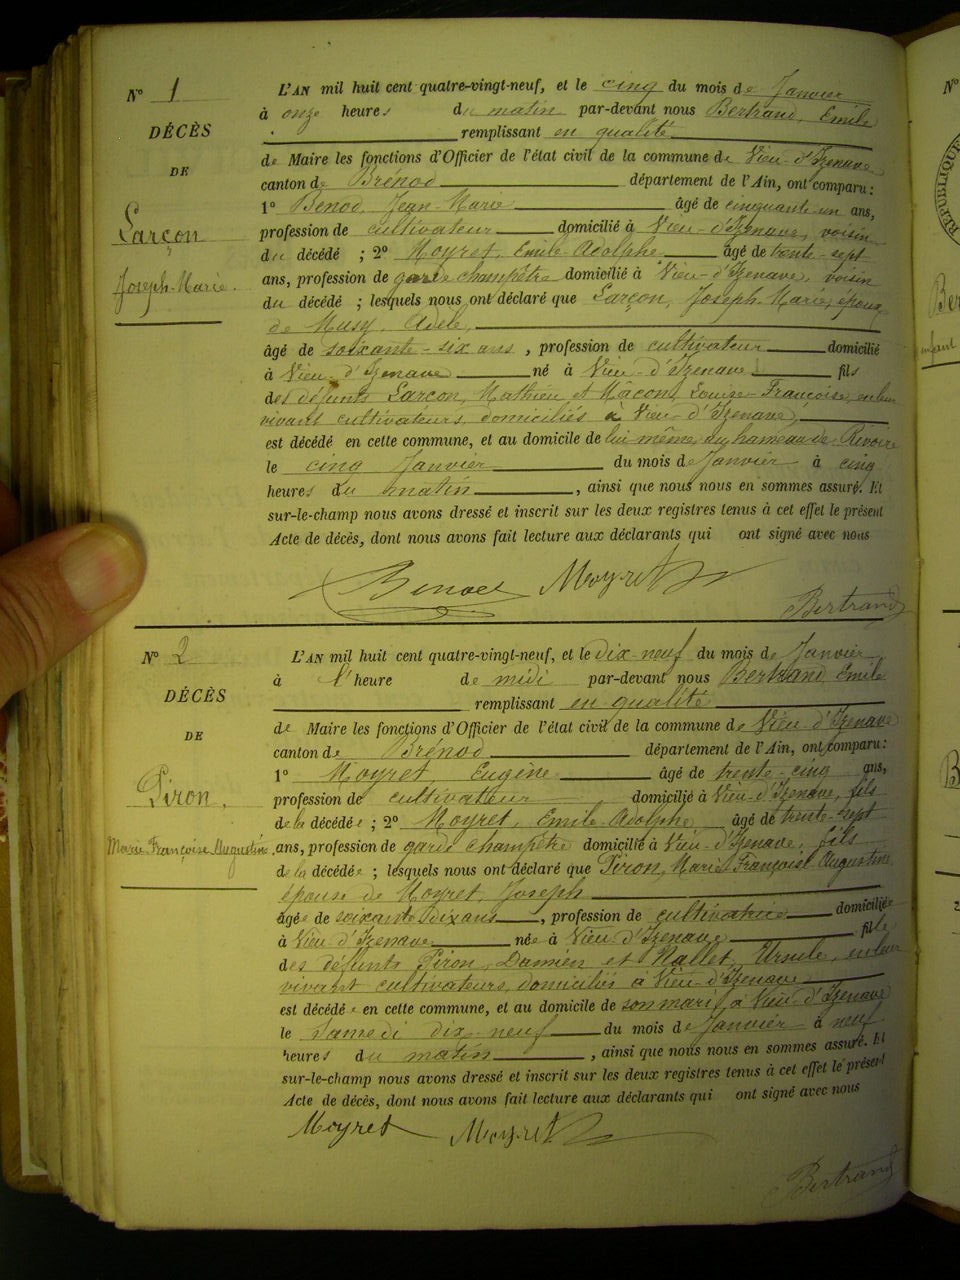 N° 1
DÉCÈS
DE
Larçon
Joseph-Marie.
L'AN mil huit cent quatre-vingt-neuf, et le cinq du mois de Janvier
à onze heures du matin par-devant nous Bertrand, Emile
remplissant en qualité
de Maire les fonctions d'Officier de l'état civil de la commune de Vieu-d'Izenave
canton de Brénod département de l'Ain, ont comparu :
1° Benod, Jean-Marie âgé de cinquante-un ans,
profession de cultivateur domicilié à Vieu-d'Izenave, voisin
du décédé ; 2° Moyret, Emile-Adolphe âgé de trente-sept
ans, profession de garde champêtre domicilié à Vieu-d'Izenave, voisin
du décédé ; lesquels nous ont déclaré que Larçon, Joseph-Marie, époux
de Musy, Adèle,
âgé de soixante-six ans, profession de cultivateur domicilié
à Vieu-d'Izenave né à Vieu-d'Izenave fils
des défunts Larçon, Mathieu et Mâcon, Louise-Françoise, en leur
vivant cultivateurs, domiciliés à Vieu-d'Izenave,
est décédé en cette commune, et au domicile de lui même, au hameau de Rivoire
le cinq Janvier du mois de Janvier à cinq
heures du matin, ainsi que nous nous en sommes assuré. Et
sur-le-champ nous avons dressé et inscrit sur les deux registres tenus à cet effet le présent
Acte de décès, dont nous avons fait lecture aux déclarants qui ont signé avec nous
Benod Moyret
Bertrand
N° 2
DÉCÈS
DE
Piron,
Marie Françoise Augustine,
L'AN mil huit cent quatre-vingt-neuf, et le dix-neuf du mois de Janvier
à l'heure de midi par-devant nous Bertrand, Emile
remplissant en qualité
de Maire les fonctions d'Officier de l'état civil de la commune de Vieu-d'Izenave
canton de Brénod département de l'Ain, ont comparu :
1° Moyret Eugène âgé de trente-cinq ans,
profession de cultivateur domicilié à Vieu-d'Izenave, fils
de la décédée ; 2° Moyret, Emile-Adolphe âgé de trente-sept
ans, profession de garde champêtre domicilié à Vieu-d'Izenave, fils
de la décédée ; lesquels nous ont déclaré que Piron, Marie Françoise Augustine
épouse de Moyret, Joseph
âgée de soixante dix ans, profession de cultivatrice domiciliée
à Vieu-d'Izenave née à Vieu-d'Izenave fille
des défunts Piron, Damien et Nallet, Ursule, en leur
vivant cultivateurs, domiciliés à Vieu-d'Izenave
est décédée en cette commune, et au domicile de son mari, à Vieu-d'Izenave
le samedi dix-neuf du mois de Janvier à neuf
heures du matin, ainsi que nous nous en sommes assuré. Et
sur-le-champ nous avons dressé et inscrit sur les deux registres tenus à cet effet le présent
Acte de décès, dont nous avons fait lecture aux déclarants qui ont signé avec nous
Moyret Moyret
Bertrand